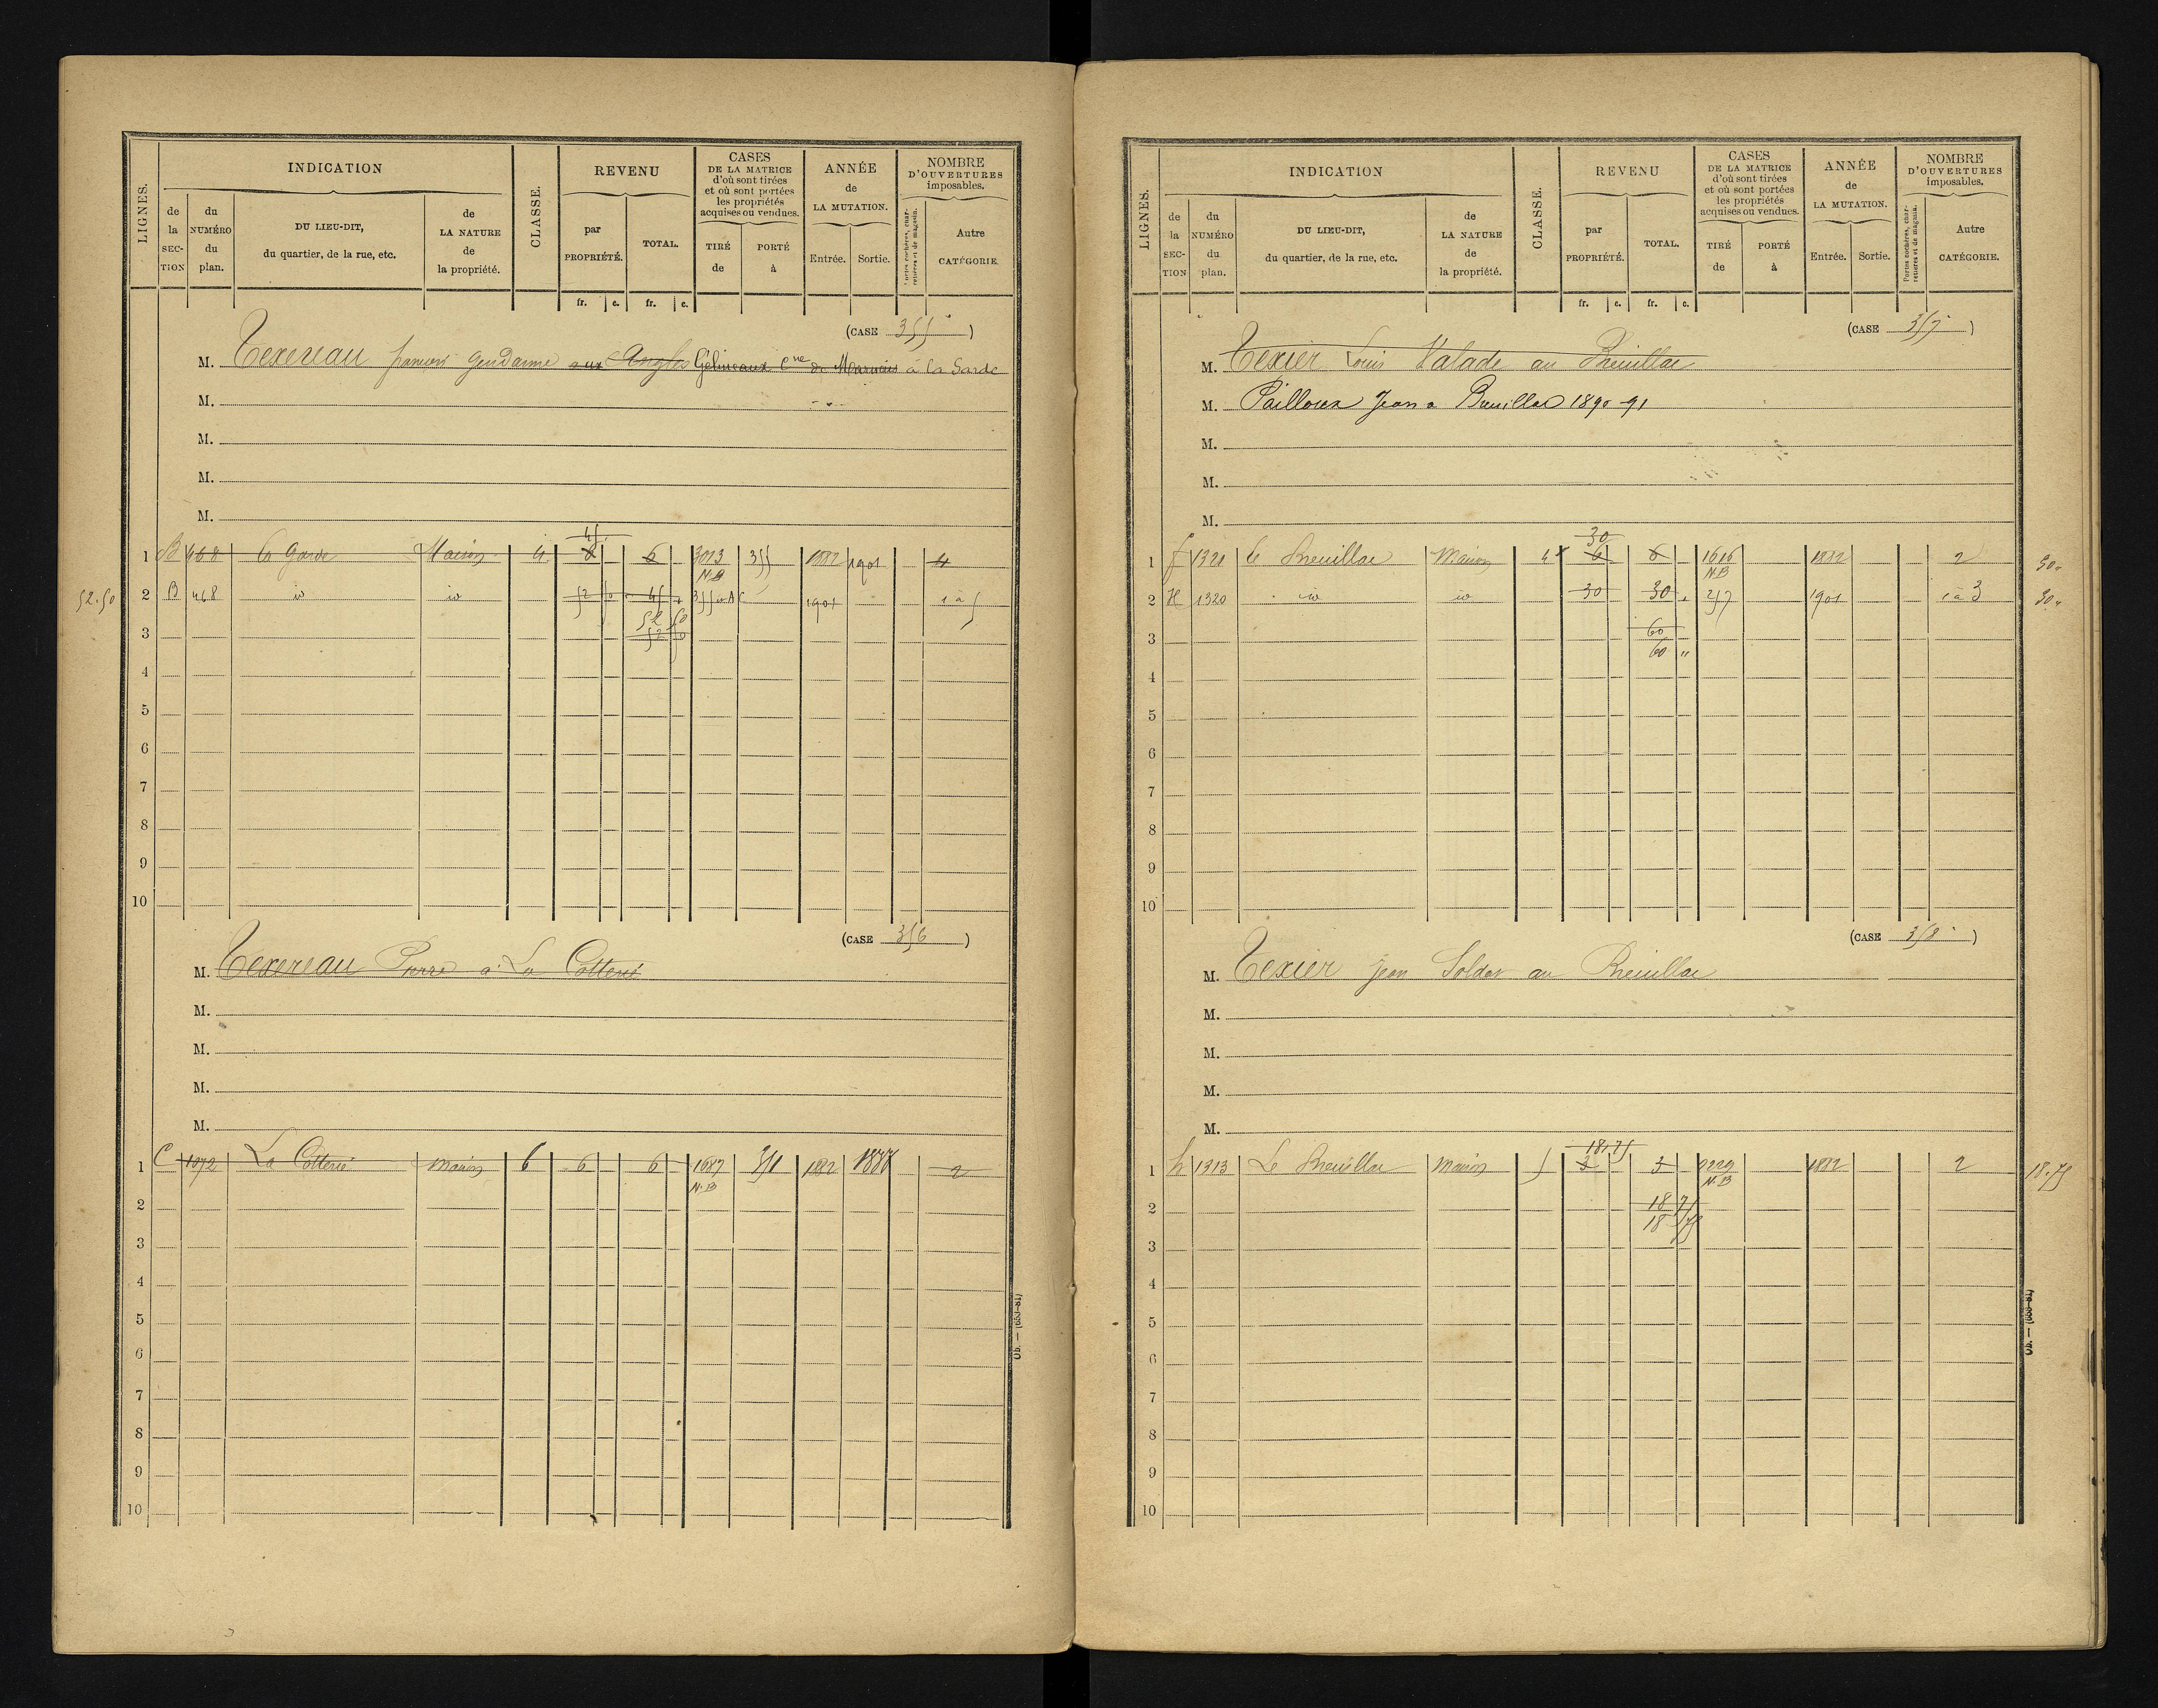 LIGNES.
INDICATION
de la SEC-TION
du NUMÉRO du plan.
DU LIEU-DIT, du quartier, de la rue, etc.
de LA NATURE de la propriété.
CLASSE.
REVENU
par PROPRIÉTÉ.
TOTAL.
CASES DE LA MATRICE d'où sont tirées et où sont portées les propriétés acquises ou vendues.
TIRÉ de
PORTÉ à
ANNÉE de LA MUTATION.
Entrée.
Sortie.
NOMBRE D'OUVERTURES imposables.
Portes cochères, charretières et de magasin.
Autre CATÉGORIE.
fr. c. fr. c.
(CASE 355)
M. Texereau françois Gendarme aux Angles Gélineaux Cne de Marnais à la Garde
M.
M.
M.
M.
45
1 B 468 la Garde Maison 4 6 3013 355 1882 1901 4
N.B
52.50 2 B 468 id id 52 50 45 1901 1 à 5
52 50
3 52 50
4
5
6
7
8
9
10
(CASE 356)
M. Texereau Pierre à La Cotterie
M.
M.
M.
M.
1 C 1072 La Cotterie maison 6 6 6 1687 351 1882 1888 2
N.B
2
3
4
5
6
7
8
9
10
LIGNES.
INDICATION
de la SEC-TION
du NUMÉRO du plan.
DU LIEU-DIT, du quartier, de la rue, etc.
de LA NATURE de la propriété.
CLASSE.
REVENU
par PROPRIÉTÉ.
TOTAL.
CASES DE LA MATRICE d'où sont tirées et où sont portées les propriétés acquises ou vendues.
TIRÉ de
PORTÉ à
ANNÉE de LA MUTATION.
Entrée.
Sortie.
NOMBRE D'OUVERTURES imposables.
Portes cochères, charretières et de magasin.
Autre CATÉGORIE.
fr. c. fr. c.
(CASE 357)
M. Texier Louis Valade au Breuillac
M. Pailloux Jean a Breuillac 1890-91
M.
M.
M.
30
1 1320 le Breuillac Maison 4 6 6 1616 1882 2 30
N.B
2 H 1320 id id 30 30 257 1901 1 à 3 30
3 60
60 "
4
5
6
7
8
9
10
(CASE 358)
M. Texier Jean Soldat au Breuillac
M.
M.
M.
M.
18,75
1 h 1313 Le Breuillac maison 5 3 3 2229 1882 2 18.75
N.B
2 18 75
18 75
3
4
5
6
7
8
9
10